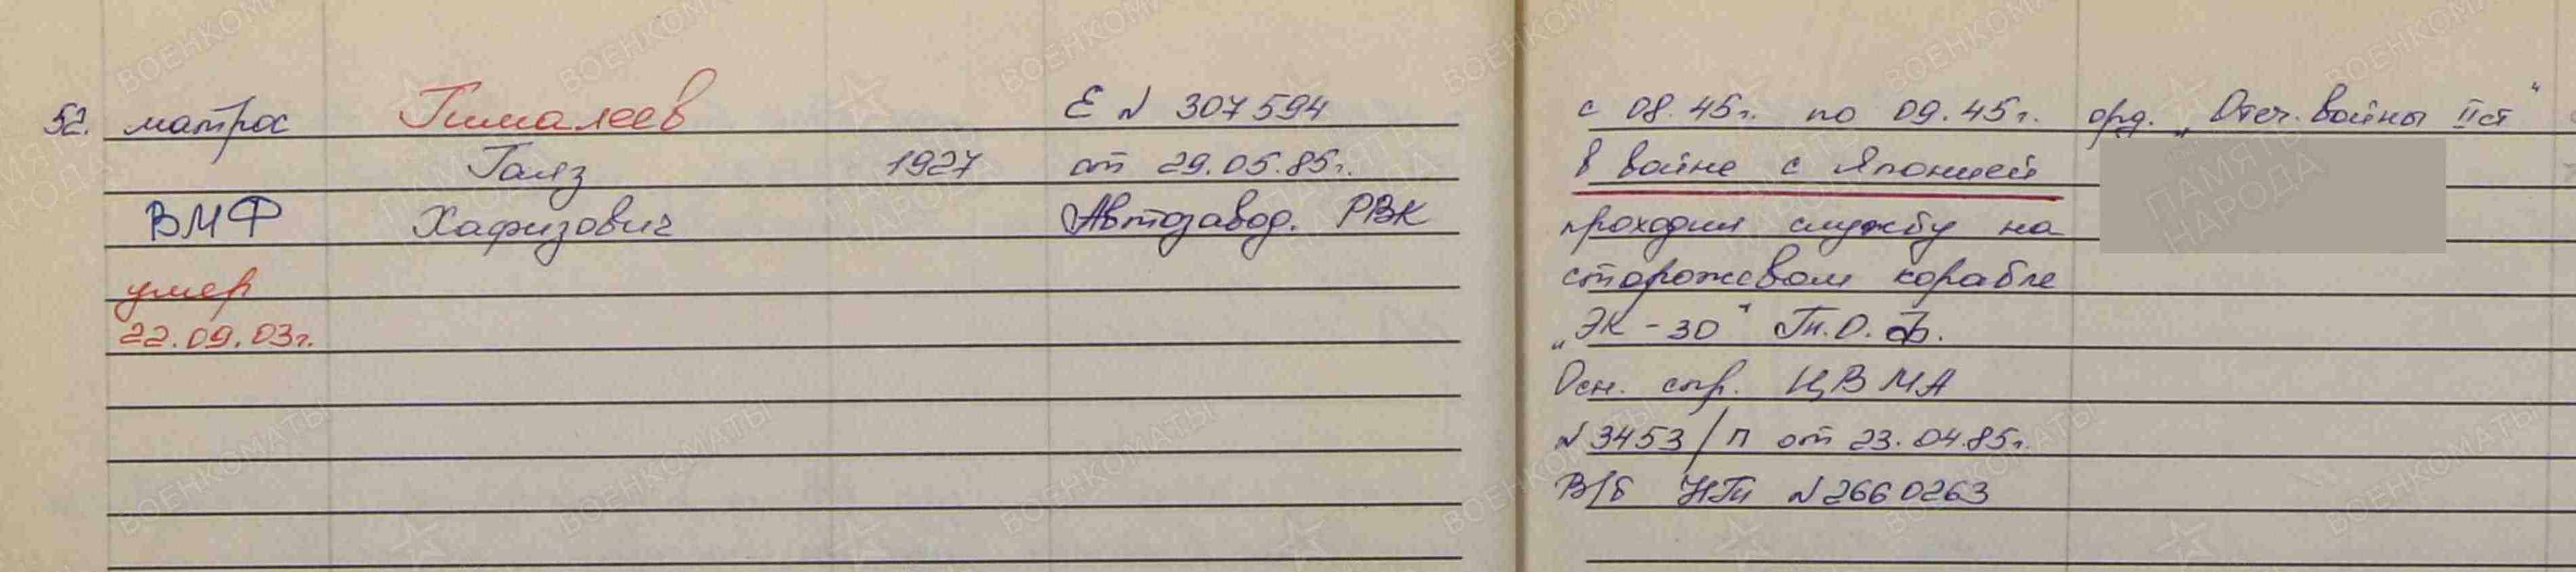 52. матрос Гималеев Е № 307594 с 08.45г. по 09.45г. орд. „Отеч. войны II ст“
Гаяз 1927 от 29.05.85г. в войне с Японией
ВМФ Хафизович Автозавод. РВК проходил службу на
умер сторожевом корабле
22.09.03г. „ЭК-30“ Т.О.Ф.
Осн. спр. ЦВМА
№3453/П от 23.04.85г.
В/б НП №2660263
ВОЕНКОМАТЫ
ПАМЯТЬ
НАРОДА